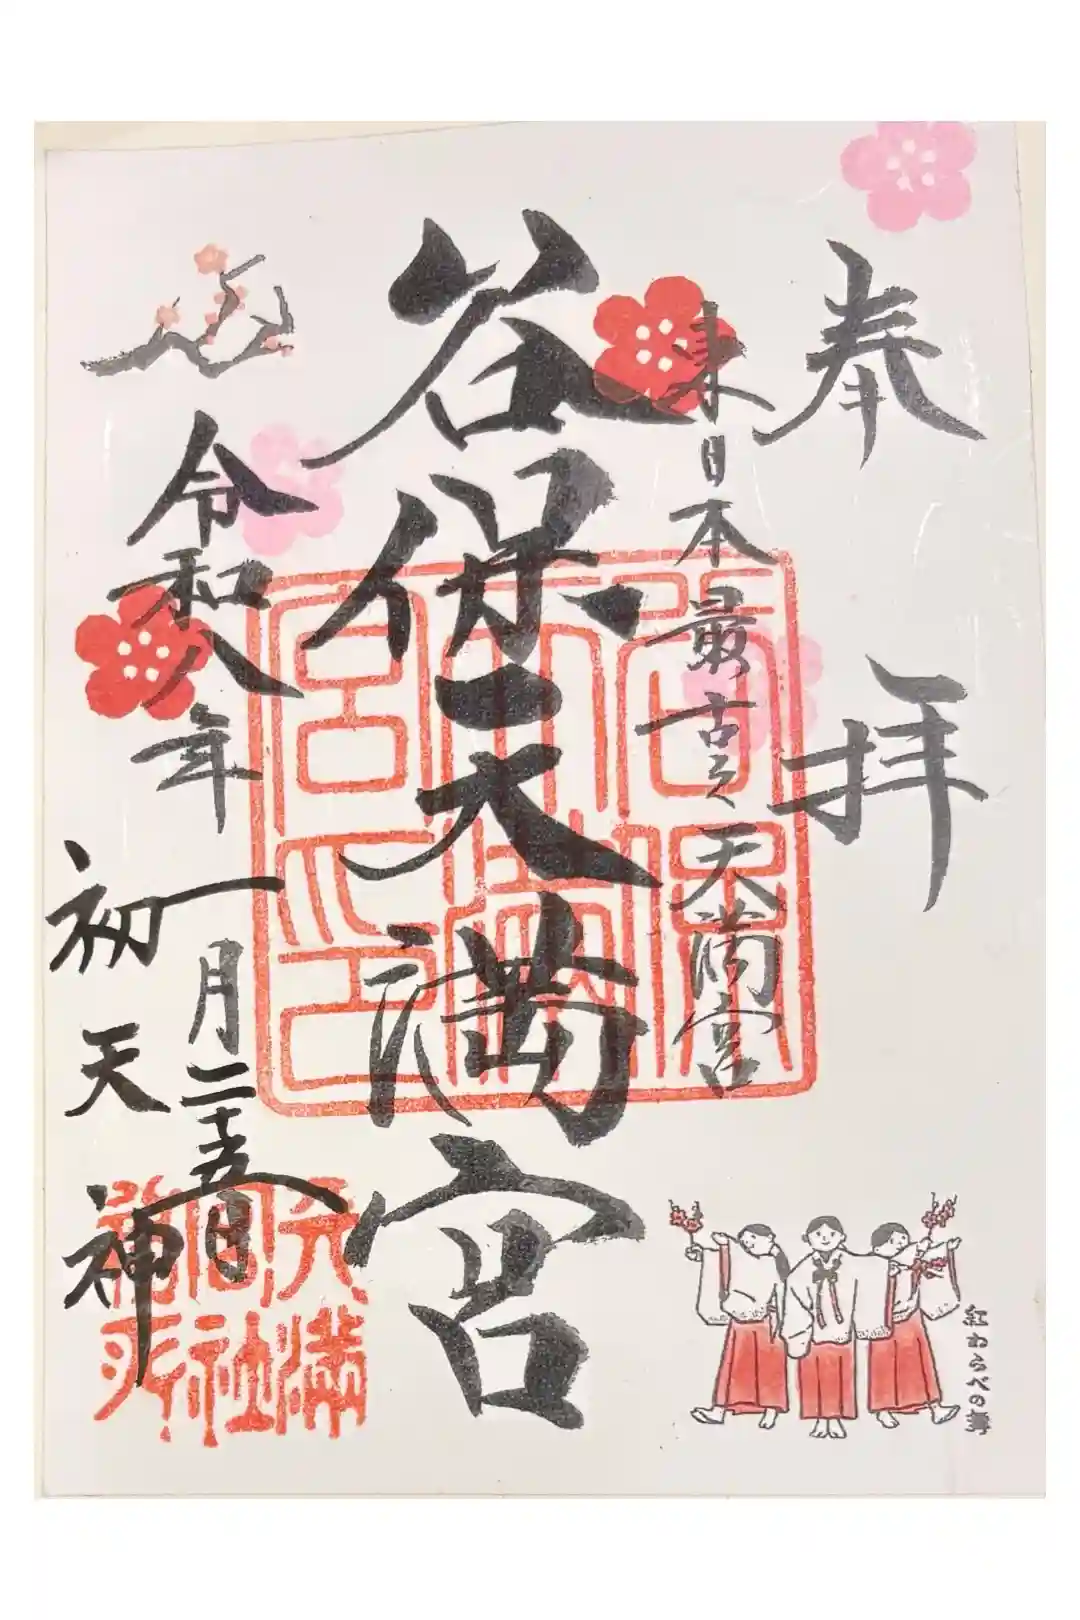 奉拝
東日本最古之天満宮
谷保天満宮
令和八年
一月二十五日
初天神
紅わらべの舞
谷保
天満
宮印
天満
宮社